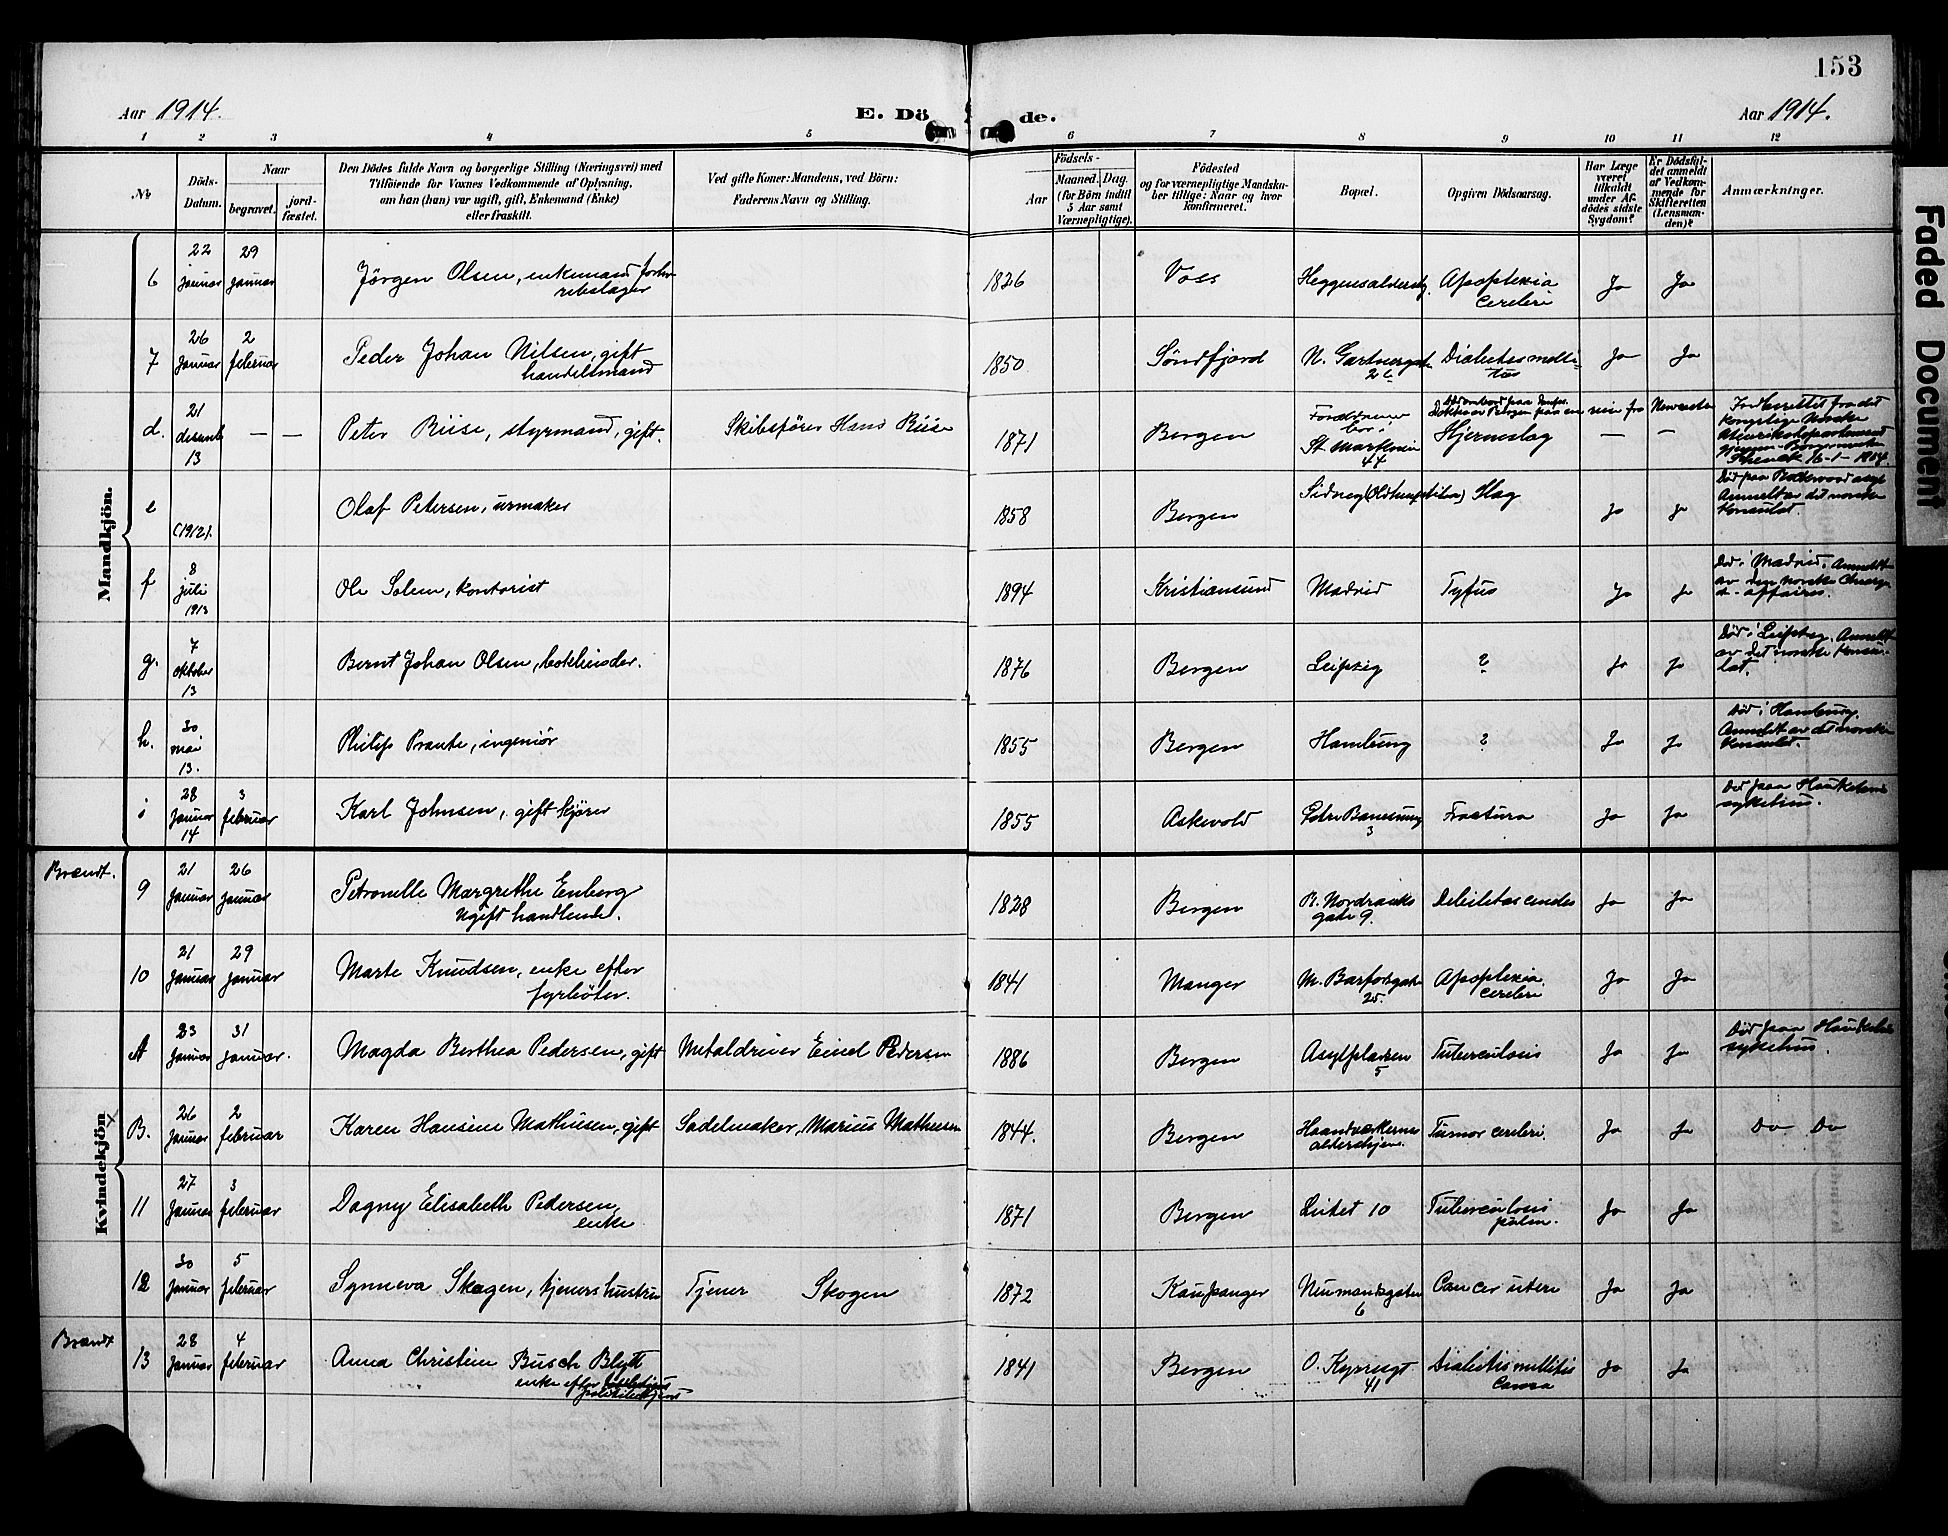 153
Aar 1914.
E. Döde.
Aar 1914.
1 2 3 4 5 6 7 8 9 10 11 12
No
Döds-Datum.
Naar
begravet.
jord-fæstet.
Den Dödes fulde Navn og borgerlige Stilling (Næringsvei) med
Tilföiende for Voxnes Vedkommende af Oplysning,
om han (han) var ugift, gift, Enkemand (Enke)
eller fraskilt.
Ved gifte Koner: Mandens, ved Börn:
Faderens Navn og Stilling.
Födsels-
Aar
Maaned.
Dag.
(for Börn indtil
5 Aar samt
Værnepligtige).
Födested
og for værnepligtige Mandska-
ber tillige: Naar og hvor
konfirmeret.
Bopæl.
Opgiven Dödsaarsag.
Har Læge
været
tilkaldt
under Af-
dödes sidste
Sygdom?
Er Dödsfal-
det anmeldt
af Vedkom-
mende for
Skifteretten
(Lensman-
den)?
Anmærkninger.
Mandkjön.
6 22 januar 29 januar Jørgen Olsen, enkemand 1826 Voss Apoplexia cerebri Ja Ja
7 26 januar 2 februar Peder Johan Nilsen, gift handelsmand 1850 Söndfjord N. Gartnergt. Ja Ja
d. 21 desemb 13 — — Peter Riise, styrmand, gift. Skibsfører Hans Riise 1871 Bergen St. Markvei 44 Hjerneslag — —
e (1912). Olaf Petersen, urmaker 1858 Bergen Slag Ja Ja
f 8 juli 1913 Ole Solem, kontorist 1894 Kristiansund Madrid Tyfus Ja Ja Död i Madrid. Anmeldt av den norske Charge d'affaires.
g. 7 oktober 13 Bernt Johan Olsen, 1876 Bergen Leipzig ? Ja Ja Död i Leipzig. Anmeldt av det norske konsulat.
h. 30 mai 13. Philip Prante, ingeniör 1855 Bergen Hamburg ? Ja Ja Död i Hamburg. Anmeldt av det norske konsulat.
i 28 januar 14 3 februar Karl Johnsen, gift kjører 1855 Askevold 3 Fractura Ja Ja Död paa Haukelands sykehus.
Kvindekjön
Brændt. 9 21 januar 26 januar Petronelle Margrethe Enberg ugift handlende. 1828 Bergen R. Nordraaks gate 9. Ja Ja
10 21 januar 29 januar Marte Knudsen, enke efter fyrbøter. 1841 Manger 25. Apoplexia cerebri Ja Ja
A 23 januar 31 januar. Magda Berthea Pedersen, gift Metaldreier Pedersen 1886 Bergen Asylpladsen 5 Tuberculosis Ja Ja Död paa Haukelands sykehus.
B. 26 januar 2 februar Karen Hansine Mathiesen, gift Sadelmaker, Marius Mathiesen 1844. Bergen Haandværkernes aldershjem. Tumor cerebri. Ja Ja Do Do
11 27 januar 3 februar Dagny Elisabeth Pedersen, enke 1871 Bergen 10 Tuberculosis pulm. Ja Ja
12 30 januar 5 februar Synneva Skogen, tjeners hustru Tjener Skogen 1872 Kaupanger Neumannsgaten 6 Cancer uteri Ja Ja
Brændt 13 28 januar 4 februar Anna Christine Busch Blytt enke efter 1841 Bergen O. Kyrresgt. 41 Diabetis mellitis Coma Ja Ja
Faded Document